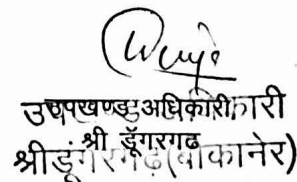 उपखण्ड अधिकारी
श्री डूँगरगढ
श्रीडूंगरगढ़ (बीकानेर)